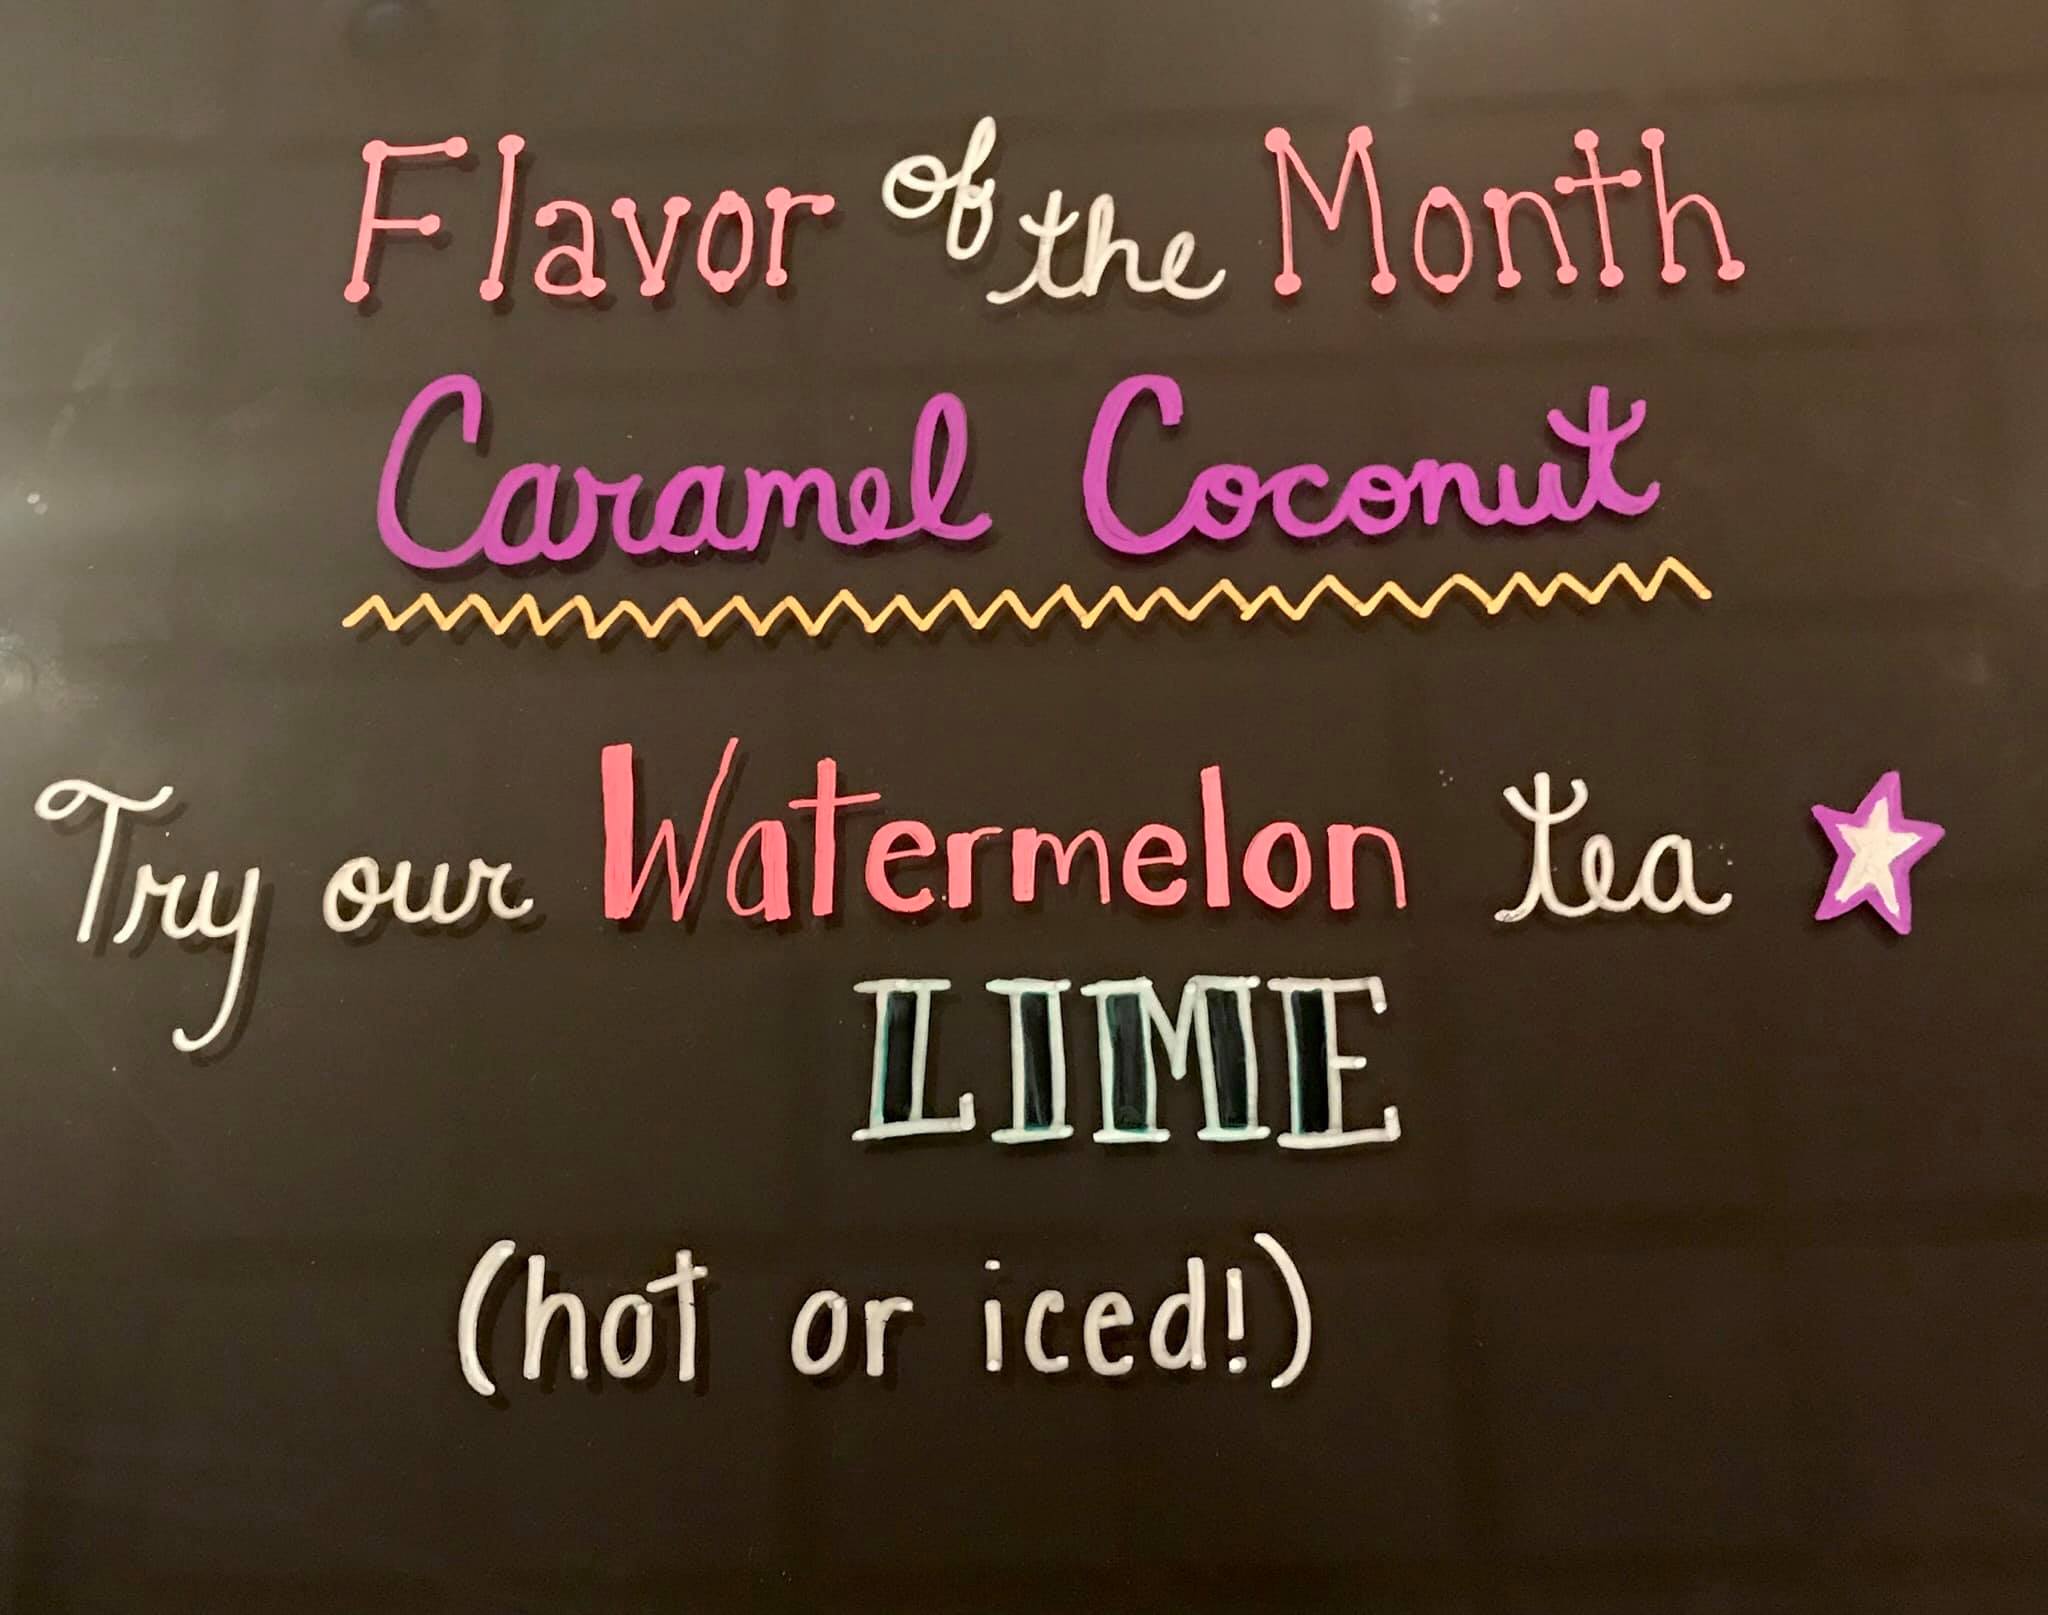 Flavor of the Month
Caramel Coconut
Try our Watermelon tea
LIME
(hot or iced!)